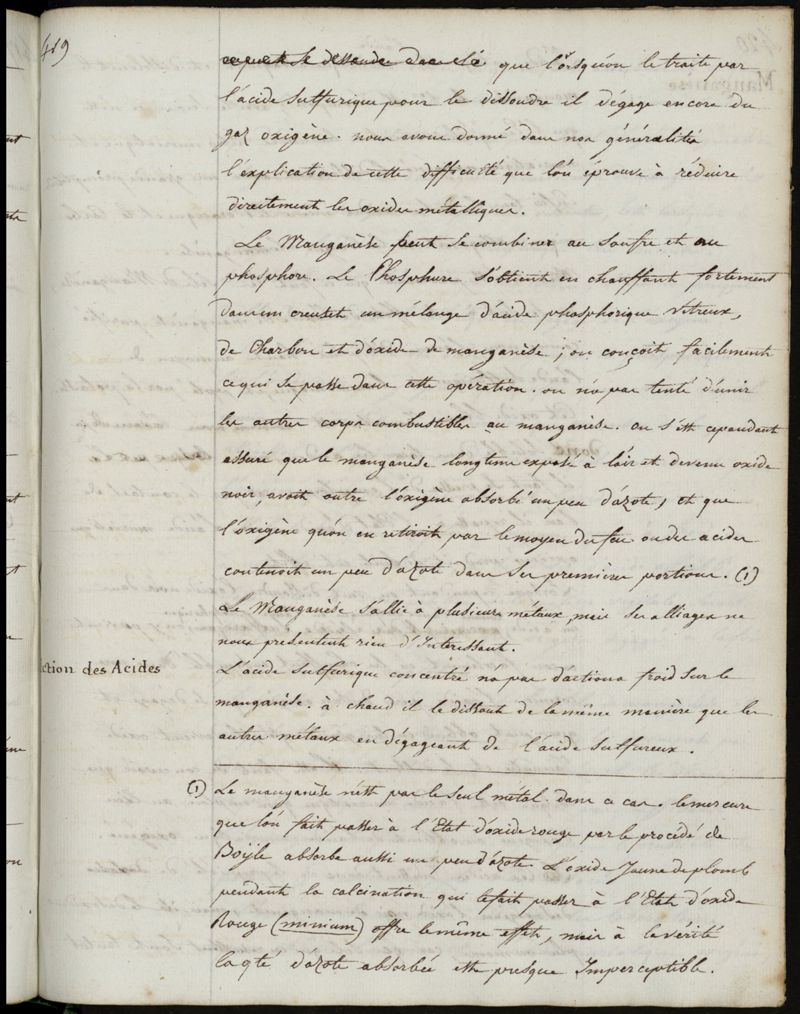 419
que lorsqu'on le traite par
l'acide sulfurique pour le dissoudre il dégage encore du
gaz oxigène. nous avons donné dans nos généralités
l'explication de cette difficulté que l'on éprouve à réduire
directement les oxides métalliques.
Le Manganèse peut se combiner au soufre et au
phosphore. Le Phosphure s'obtient en chauffant fortement
dans un creuset un mélange d'acide phosphorique vitreux,
de Charbon et d'oxide de manganèse ; on conçoit facilement
ce qui se passe dans cette opération. on n'a pas tenté d'unir
les autres corps combustibles au manganèse. on s'est cependant
assuré que le manganèse longtems exposé à l'air et devenu oxide
noir, avoit outre l'oxigène absorbé un peu d'azote, et que
l'oxigène qu'on en retiroit par le moyen du feu ou des acides
contenoit un peu d'azote dans ses premières portions. (1)
Le Manganèse s'allie à plusieurs métaux, mais ses alliages ne
nous présentent rien d'Interessant.
ction des Acides
L'acide sulfurique concentré n'a pas d'action a froid sur le
manganèse. à chaud il le dissout de la même manière que les
autres métaux en dégageant de l'acide sulfureux.
(1) Le manganèse n'est pas le seul métal dans ce cas. le mercure
que l'on fait passer à l'Etat d'oxide rouge par le procédé de
Boijle absorbe aussi un peu d'azote. L'oxide Jaune de plomb
pendant la calcination qui le fait passer à l'Etat d'oxide
Rouge (minium) offre le même effet, mais à la vérité
la qté d'azote absorbée est presque Imperceptible.